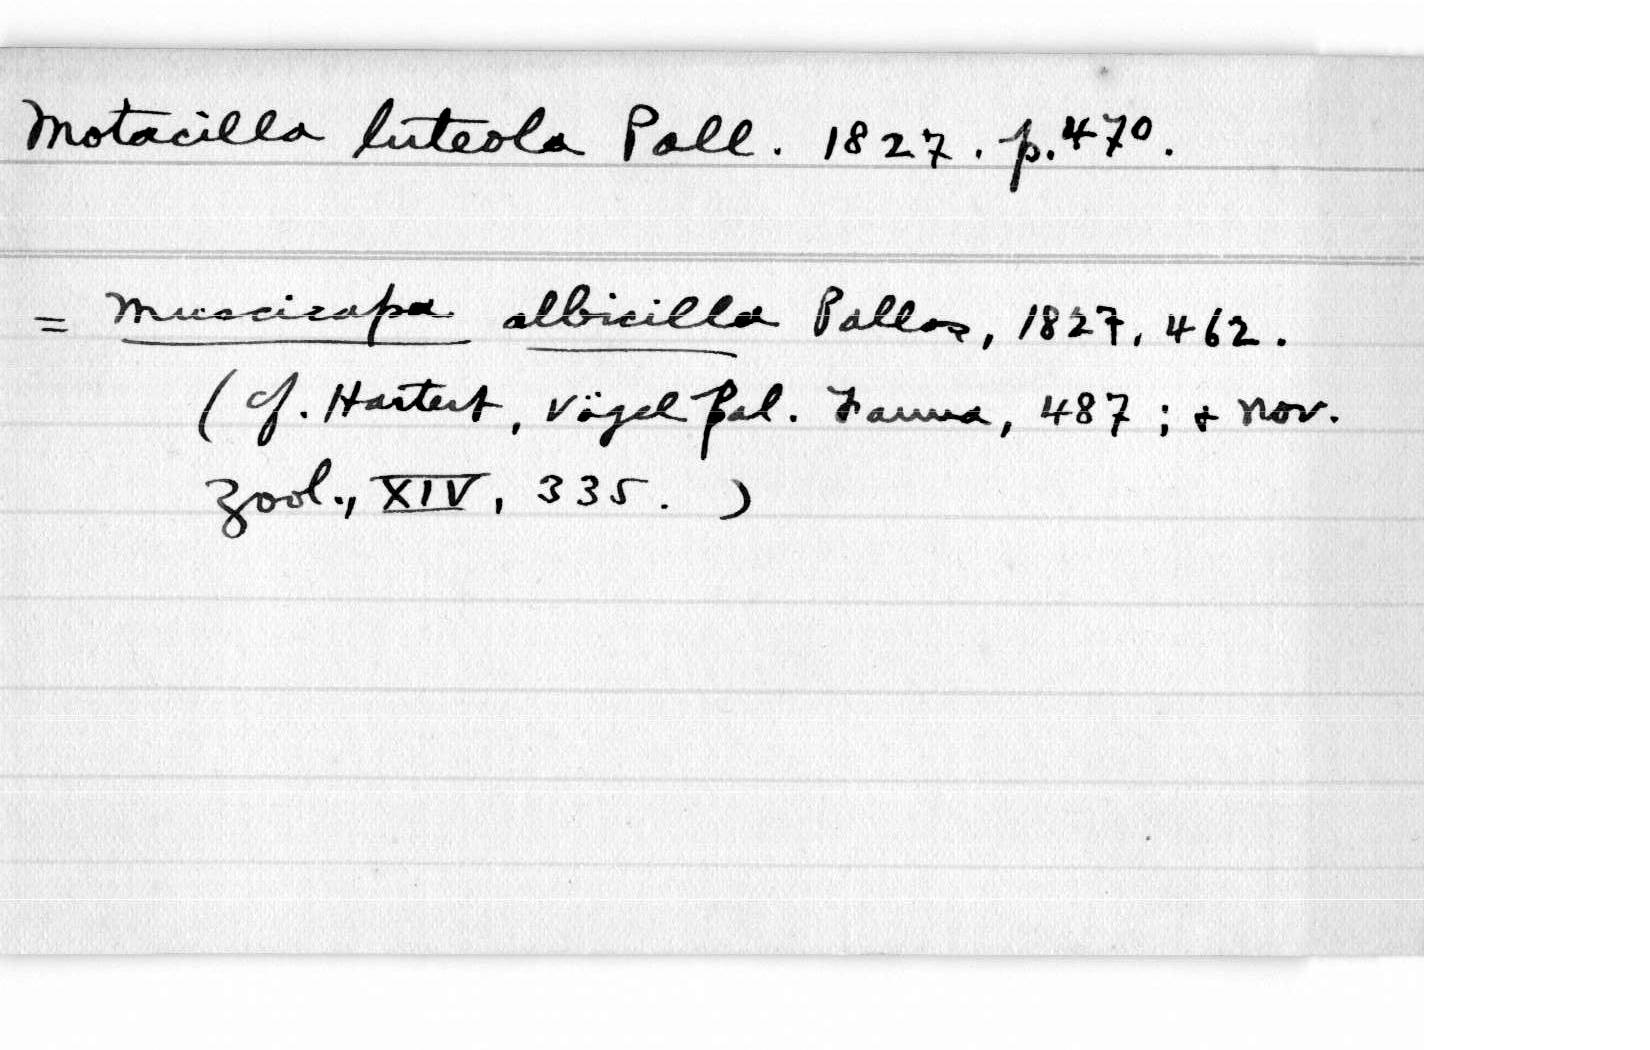 Motacilla luteola Pall. 1827. p. 470.
= Muscicapa albicilla Pallas, 1827, 462.
(cf. Hartert, Vögel Pal. Fauna, 487; & Nov.
Zool., XIV, 335.)